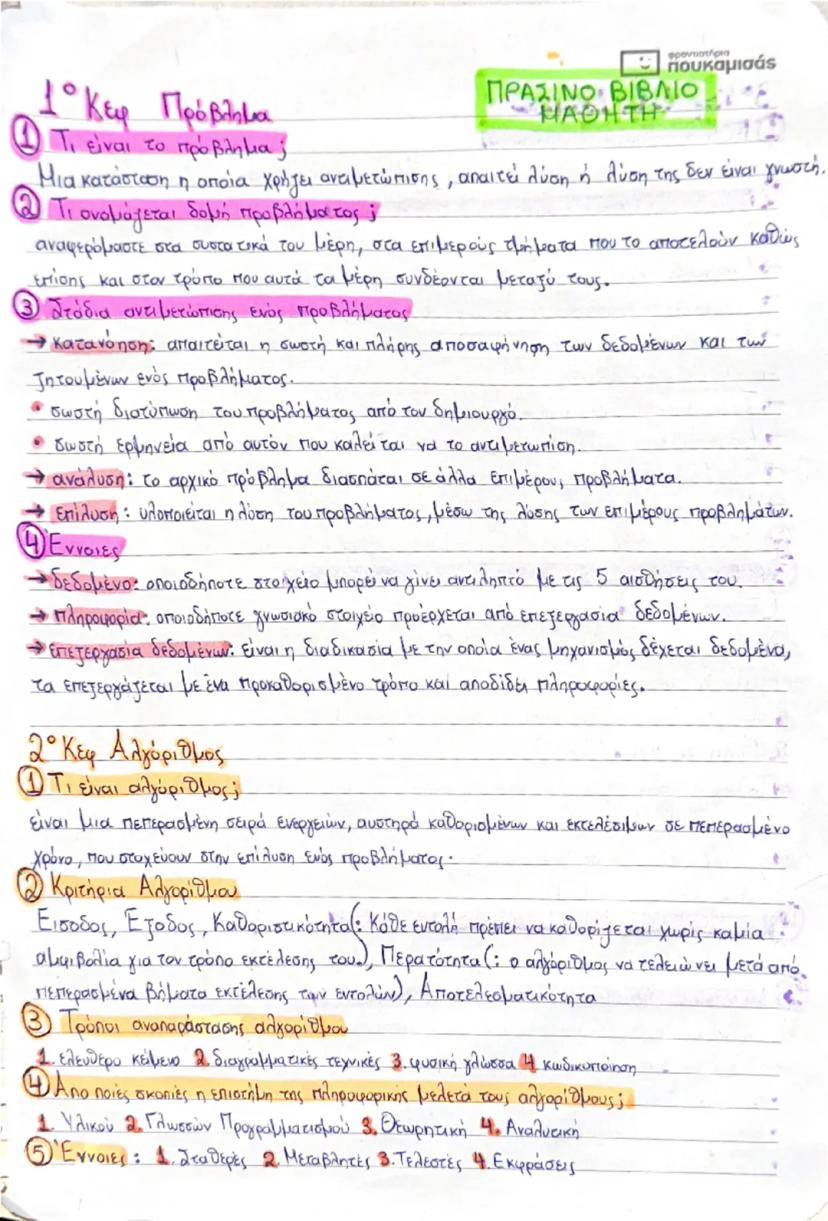 φροντιστήρια
πουκαμισάς
ΠΡΑΣΙΝΟ ΒΙΒΛΙΟ
ΜΑΘΗΤΗ
1° Κεφ Πρόβλημα
① Τι είναι το πρόβλημα;
Μια κατάσταση η οποία χρήζει αντιμετώπισης, απαιτεί λύση ή λύση της δεν είναι γνωστή.
② Τι ονομάζεται δομή προβλήματος;
αναφερόμαστε στα συστατικά του μέρη, στα επιμέρους τμήματα που το αποτελούν καθώς
επίσης και στον τρόπο που αυτά τα μέρη συνδέονται μεταξύ τους.
③ Στάδια αντιμετώπισης ενός προβλήματος
→ κατανόηση: απαιτείται η σωστή και πλήρης αποσαφήνηση των δεδομένων και των
ζητουμένων ενός προβλήματος.
• σωστή διατύπωση του προβλήματος από τον δημιουργό.
• σωστή ερμηνεία από αυτόν που καλείται να το αντιμετωπίση.
→ ανάλυση: το αρχικό πρόβλημα διασπάται σε άλλα επιμέρους προβλήματα.
→ επίλυση: υλοποιείται η λύση του προβλήματος, μέσω της λύσης των επιμέρους προβλημάτων.
④ Εννοιες
→ δεδομένο: οποιοδήποτε στοιχείο μπορεί να γίνει αντιληπτό με τις 5 αισθήσεις του.
→ πληροφορία: οποιοδήποτε γνωσιακό στοιχείο προέρχεται από επεξεργασία δεδομένων.
→ επεξεργασία δεδομένων: είναι η διαδικασία με την οποία ένας μηχανισμός δέχεται δεδομένα,
τα επεξεργάζεται με ένα προκαθορισμένο τρόπο και αποδίδει πληροφορίες.
2° Κεφ Αλγόριθμος
① Τι είναι αλγόριθμος;
είναι μια πεπερασμένη σειρά ενεργειών, αυστηρά καθορισμένων και εκτελέσιμων σε πεπερασμένο
χρόνο, που στοχεύουν στην επίλυση ενός προβλήματος.
② Κριτήρια Αλγορίθμου
Είσοδος, Έξοδος, Καθοριστικότητα(: Κάθε εντολή πρέπει να καθορίζεται χωρίς καμία
αμφιβολία για τον τρόπο εκτέλεσης του.), Περατότητα(: ο αλγόριθμος να τελειώνει μετά από
πεπερασμένα βήματα εκτέλεσης των εντολών), Αποτελεσματικότητα
③ Τρόποι αναπαράστασης αλγορίθμου
1. ελεύθερο κείμενο 2. διαγραμματικές τεχνικές 3. φυσική γλώσσα 4 κωδικοποίηση
④ Απο ποιές σκοπιές η επιστήμη της πληροφορικής μελετά τους αλγορίθμους;
1. Υλικού 2. Γλωσσών Προγραμματισμού 3. Θεωρητική 4. Αναλυτική
⑤ Έννοιες: 1. Σταθερές 2. Μεταβλητές 3. Τελεστές 4. Εκφράσεις